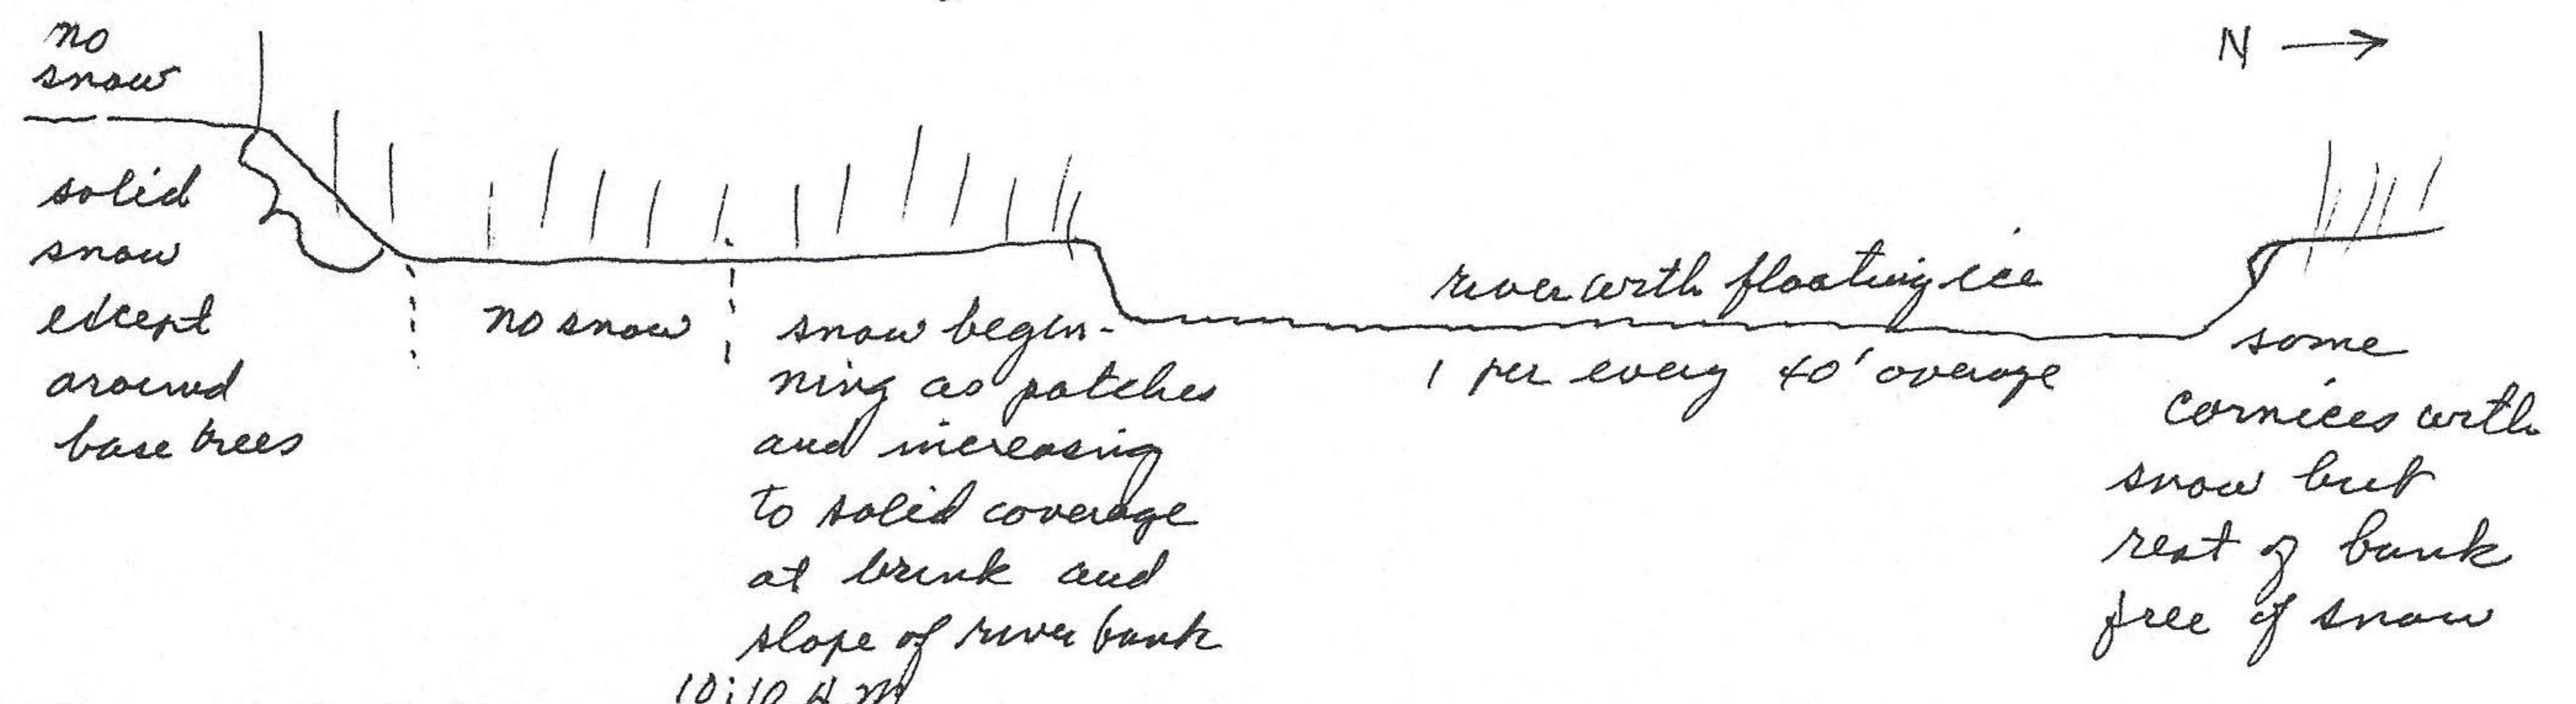 no
snow
N
solid
snow
except
around
base trees
no snow
snow begin-
ning as patches
and increasing
to solid coverage
at brink and
slope of river bank
river with floating ice
1 per every 40' average
some
cornices with
snow but
rest of bank
free of snow
10:10 A.M